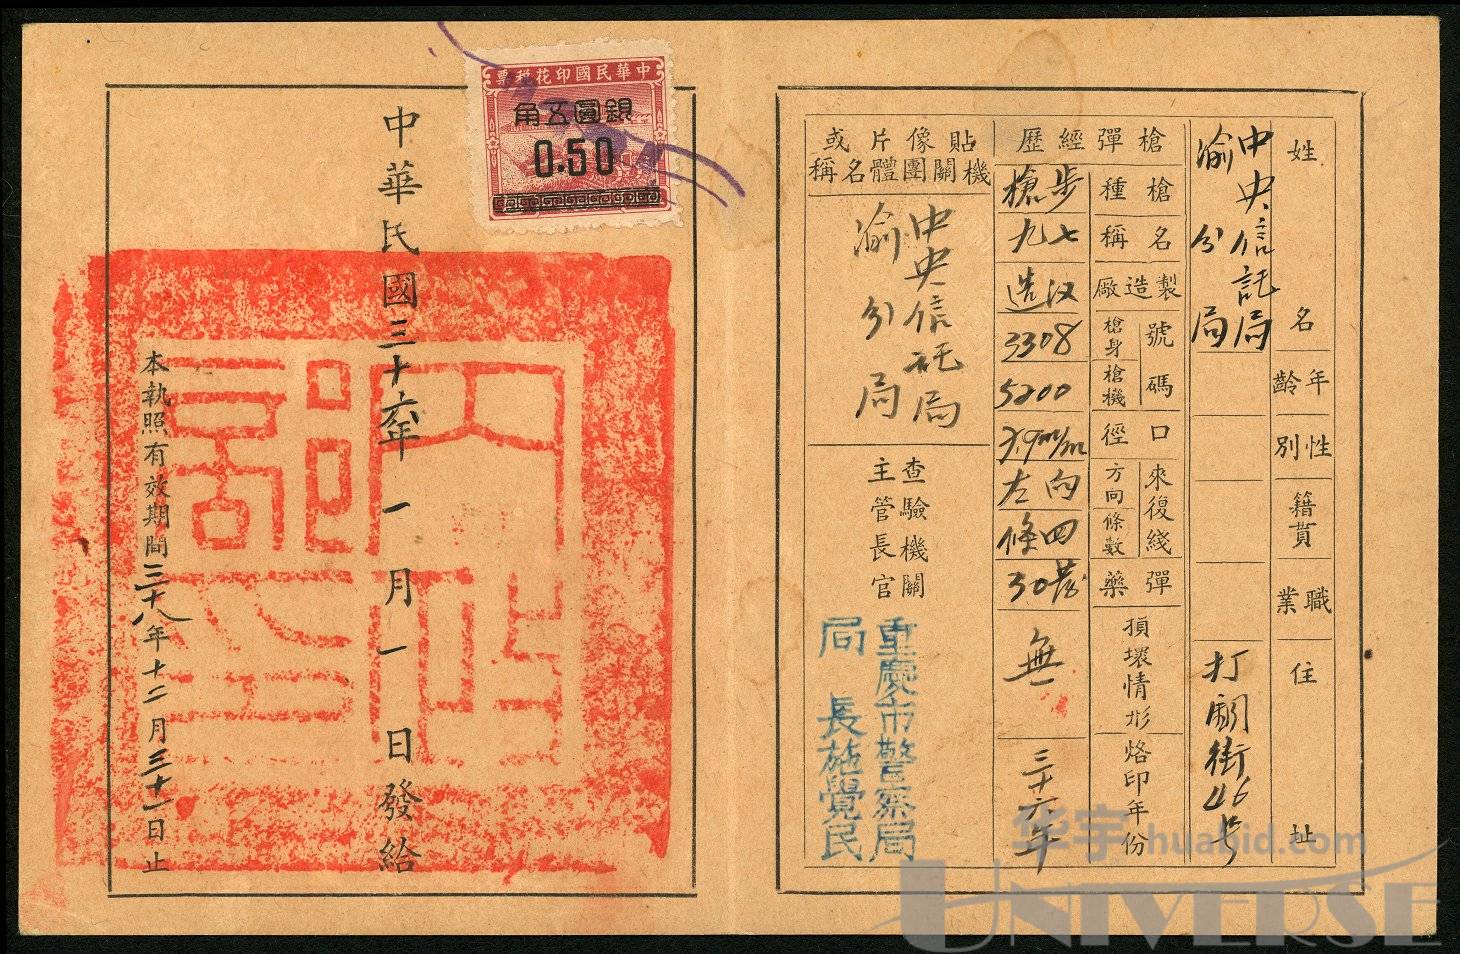 姓名
中央信託局
渝分局
年齡
性別
籍貫
職業
住址
打銅街46号
槍彈經歷
槍種
步槍
名稱
七九
製造廠
汉造
號碼
槍身
3308
槍機
5200
口徑
7.9m/m
來復綫
方向
向左
條數
四條
彈藥
30发
損壞情形
無
烙印年份
三十六年
貼像片或
機關團體名稱
中央信託局
渝分局
查驗機關
主管長官
重慶市警察局
局長施覺民
中華民國印花稅票
銀圓五角
0.50
中華民國三十六年一月一日發給
內政部警察總署印
本執照有效期間三十八年十二月三十一日止
华宇 huabid.com
UNIVERSE